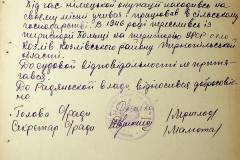 Під час німецької окупації находився на
своєму місці учився і працював в сільському
господарстві. В 1946 році переселився із
території Польщі на територію УРСР село
Козлів Козлівського району Тернопільської
області.
До судової відповідальності не притя-
гався.
До Радянської влади відносився добросовісно
Голова с/ради
Секретар с/ради